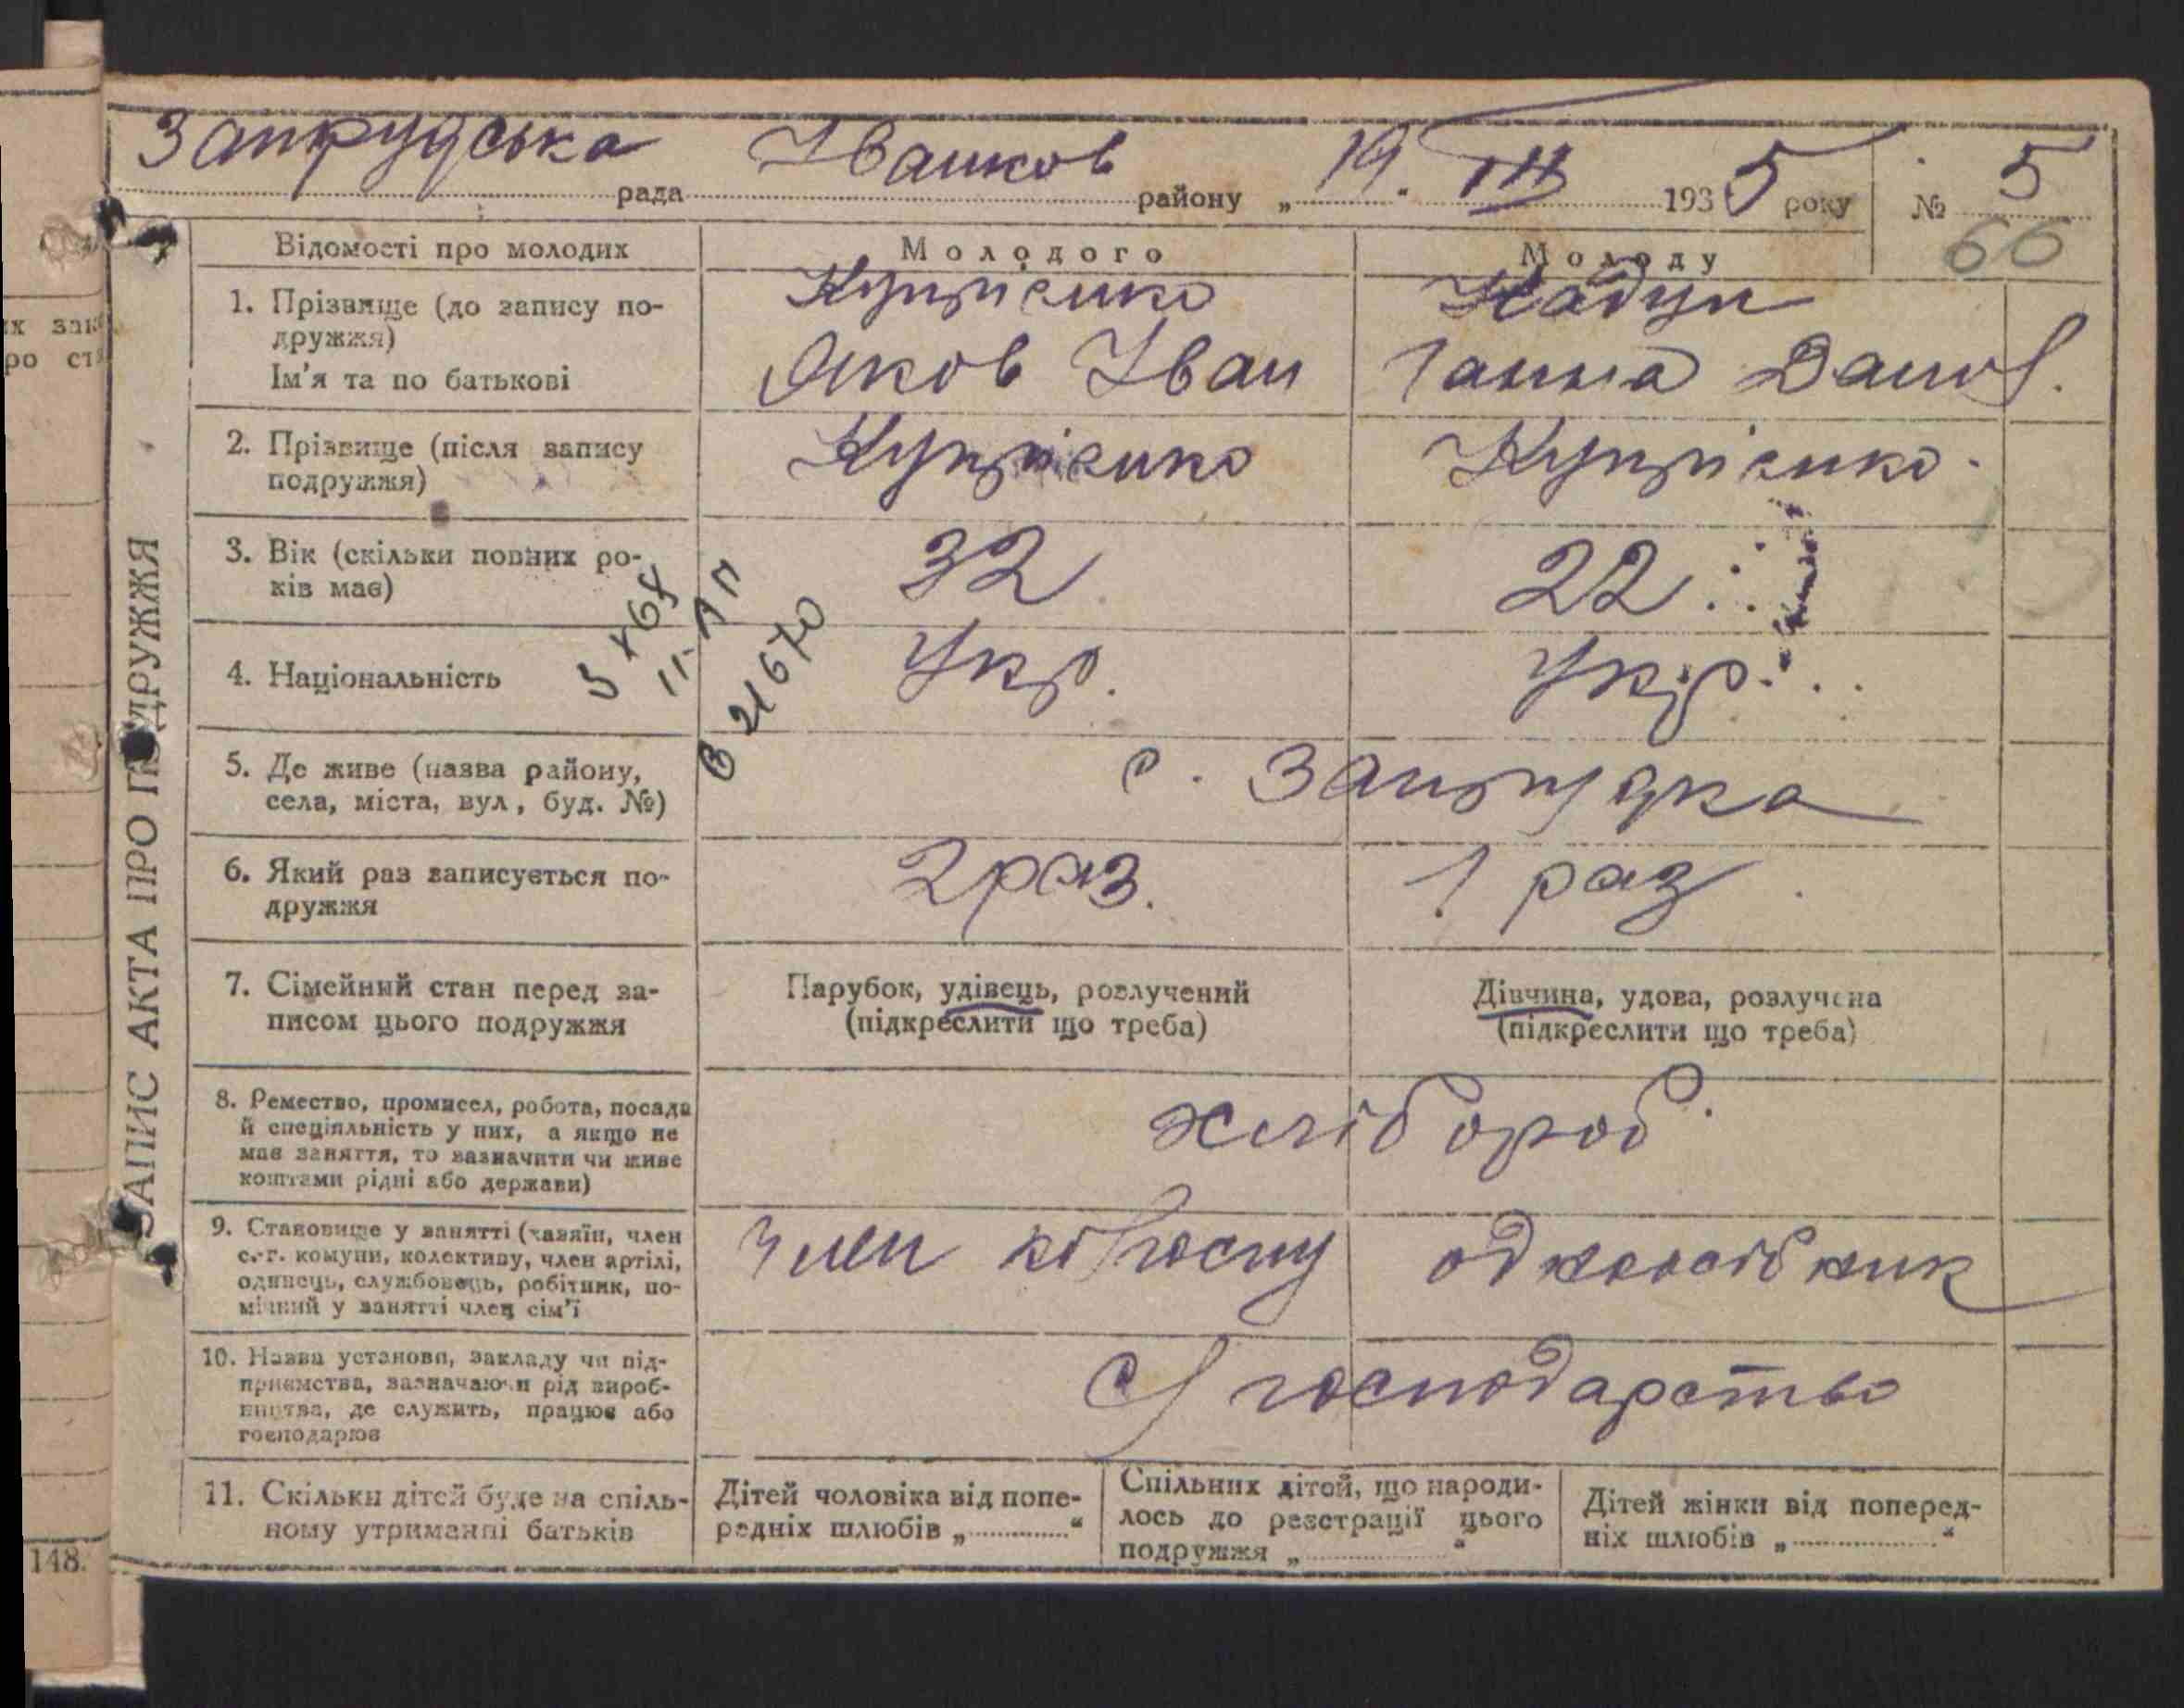 Запрудська рада Іванков району „ 19. III 1935 року № 5
66
ЗАПИС АКТА ПРО ПОДРУЖЖЯ
Відомості про молодих Молодого Молоду
1. Прізвище (до запису по-
дружжя)
Купрієнко Надун
Ім'я та по батькові Яков Іван Ганна Данил.
2. Прізвище (після запису
подружжя)
Купрієнко Купрієнко.
3. Вік (скільки повних ро-
ків має)
32 22
4. Національність Укр. Укр.
5 X 65
II-АП
21670
5. Де живе (назва району,
села, міста, вул, буд. №)
с. Запрудка
6. Який раз записується по-
дружжя
2 раз. 1 раз.
7. Сімейний стан перед за-
писом цього подружжя
Парубок, удівець, розлучений
(підкреслити що треба)
Дівчина, удова, розлучена
(підкреслити що треба)
8. Ремество, промисел, робота, посада
й спеціяльність у них, а якщо не
має заняття, то зазначити чи живе
коштами рідні або держави)
хлібороб.
9. Становище у занятті (хазяїн, член
с.-г. комуни, колективу, член артілі,
одинець, службовець, робітник, по-
мічний у занятті член сім'ї
член колгоспу одноосібник
10. Назва установи, закладу чи під-
приємства, зазначаючи рід вироб-
ництва, де служить, працює або
господарює
с/господарство
11. Скільки дітей буде на спіль-
ному утриманні батьків
Дітей чоловіка від попе-
редніх шлюбів „ “
Спільних дітей, що народи-
лось до реєстрації цього
подружжя „ “
Дітей жінки від поперед-
ніх шлюбів „ “
148.